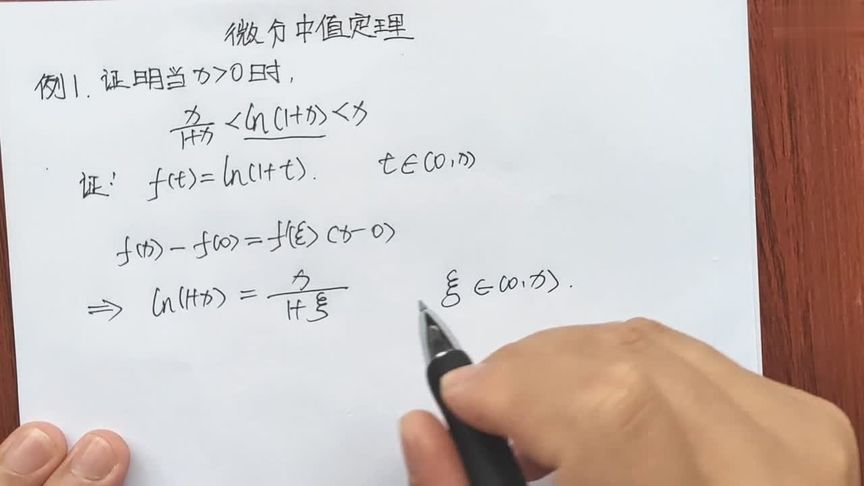 微分中值定理
例1. 证明当x>0时,
x/(1+x) < ln(1+x) < x
证: f(t)=ln(1+t). t∈(0,x)
f(x)-f(0)=f'(ξ)(x-0)
⇒ ln(1+x) = x/(1+ξ) ξ∈(0,x).